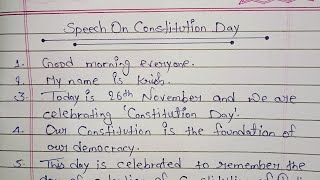 Speech On Constitution Day
1. Good morning everyone.
2. My name is Krish.
3. Today is 26th November and we are
celebrating 'Constitution Day'.
4. Our Constitution is the foundation of
our democracy.
5. This day is celebrated to remember the